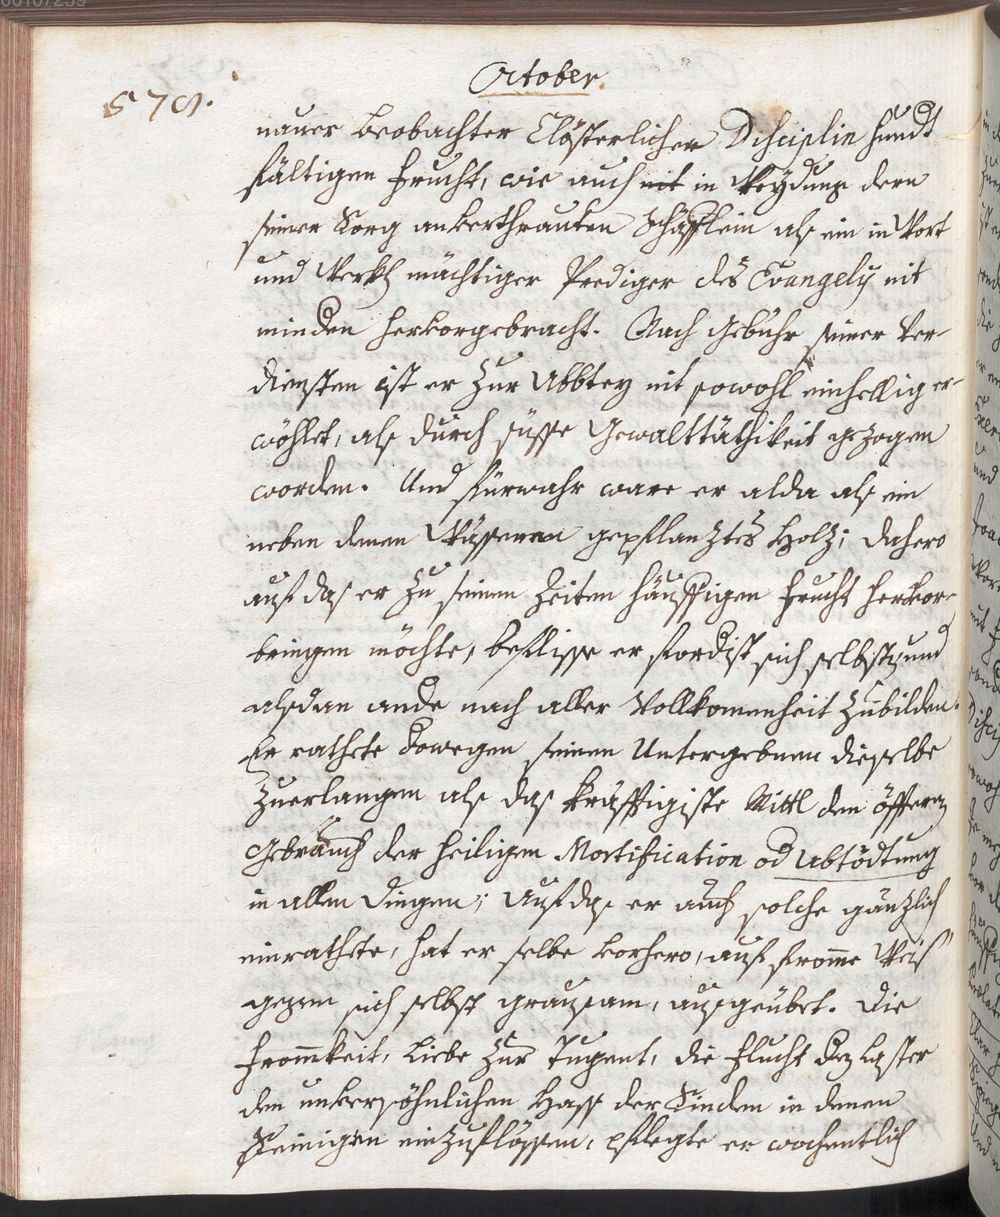 00107259
October.
570.
nauer beobachter Clösterlicher Disciplin hundt
fältigen frucht, wie auch nit in Weydung dern
seiner Sorg anvertrauten Schäfflein als ein in Wort
und Werkh mächtiger Prediger des Evangelÿ nit
minder hervorgebracht. Nach gebühr seiner Ver-
diensten ist er zur Abbtey nit sowohl einhellig er-
wöhlet, als durch süsse Gewalttäthikeit gezogen
worden. Und fürwahr ware er alda als ein
neben denen Wässeren gepflanztes Holz; dahero
auf das er zu seinen Zeiten häuffigen frucht hervor-
bringen möchte, beflisse er fordist sich selbst, und
alsdan ande nach aller Vollkomenheit zubilden.
Er rathete dowegen seinen Untergebnen dieselbe
zuerlangen als das kräfftigiste Mittl den öfferen
Gebrauch der heiligen Mortification od Abtödtung
in allen dingen; Auf das er auch solche gänzlich
einrathete, hat er selbe vorhero, auf fromme Weis
gegen sich selbst grausam, ausgeübet. Die
frommkeit, Liebe zur Tugent, die flucht der Laster
den unversöhnlichen Hass der Sünden in denen
Seinigen einzuflössen, pflegte er wochentlich